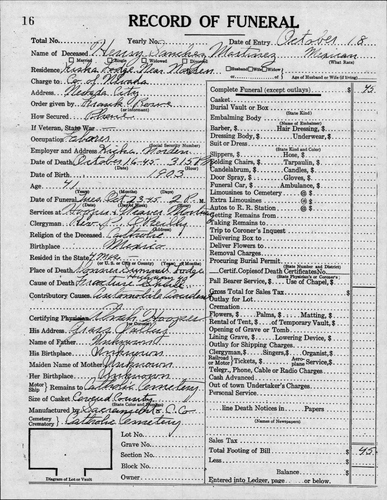 16
RECORD OF FUNERAL
Total No. Yearly No. Date of Entry October 18
Name of Deceased Henry Sanchez Martinez Mexican
Married Single Widowed Divorced (What Race)
Residence Lodge Near Norden Husband Wife or Widow of Age of Husband or Wife (if living)
Charge to Co. of Nevada
Address Nevada City
Order given by Frank
How Secured Phone
If Veteran, State War
Occupation Laborer
(Social Security Number)
Employer and Address Norden
Date of Death October 16-45 3:15 P.M.
Date of Birth 1903
Age 41
(Years) (Months) (Days)
Date of Funeral Tues Oct 23-45 2 P.M.
Services at Hooper & Weaver Mortuary
Clergyman Rev.
Religion of the Deceased Catholic
Birthplace Mexico
Resided in the State 4 Mos.
Place of Death Donner Summit Lodge
Cause of Death Fracture Skull
Contributory Causes Automobile Accident
Certifying Physician
His Address Grass Valley
Name of Father Unknown
His Birthplace Unknown
Maiden Name of Mother Unknown
Her Birthplace Unknown
Motor Ship Remains to Catholic Cemetery
Size of Casket County
(State Color and Number)
Manufactured by Sacramento C. Co
Cemetery Crematory Catholic Cemetery
Lot No.
Grave No.
Section No.
Block No.
Owner
Diagram of Lot or Vault
Complete Funeral (except outlays) $ 45
Casket
Burial Vault or Box
(State Kind)
Embalming Body
(Name of Embalmer)
Barber, $ Hair Dressing, $
Dressing Body, $ Underwear, $
Suit or Dress
(State Kind and Color)
Slippers, $ Hose, $
Folding Chairs, $ Tarpaulin, $
Candelabrum, $ Candles, $
Door Spray, $ Gloves, $
Funeral Car, $ Ambulance, $
Limousines to Cemetery @ $
Extra Limousines @ $
Autos to R. R. Station @ $
Getting Remains from
Taking Remains to
Trip to Coroner's Inquest
Delivering Box to
Deliver Flowers to
Removal Charges
Procuring Burial Permit
(State Number and District)
Certif. Copies of Death Certificates No.
(State Physician's or Coroner's)
Pall Bearer Service, $ Use of Chapel, $
Gross Total for Sales Tax $
Outlay for Lot
Cremation
Flowers, $ Palms, $ Matting, $
Rental of Tent, $ of Temporary Vault, $
Opening of Grave or Tomb
Lining Grave, $ Lowering Device, $
Outlay for Shipping Charges
Clergyman, $ Singers, $ Organist, $
Railroad or Motor Tickets, $ Aeroplane Service, $
Telegr., Phone, Cable or Radio Charges
Cash Advanced
Out of town Undertaker's Charges
Personal Service
line Death Notices in Papers
(Names of Newspapers)
Sales Tax
Total Footing of Bill $ 45
Less
Balance $
Entered into Ledger, page or below.